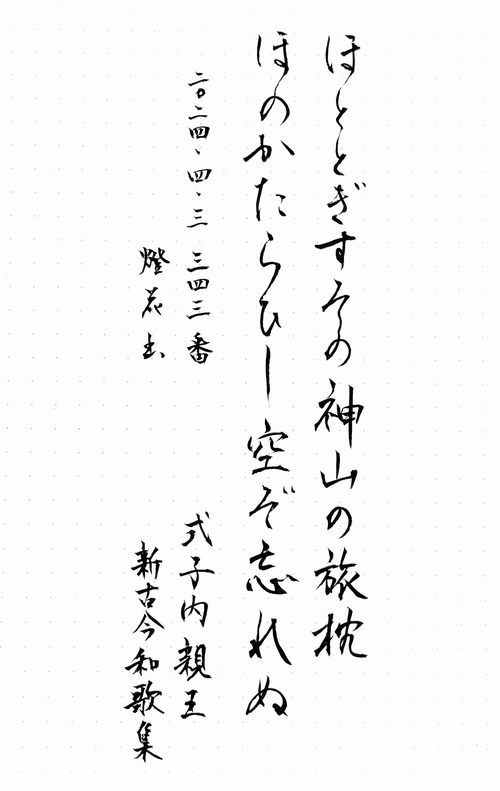 ほととぎすその神山の旅枕
ほのかたらひし空ぞ忘れぬ
二〇二四、四、三 三四三番
式子内親王
燈花玉
新古今和歌集